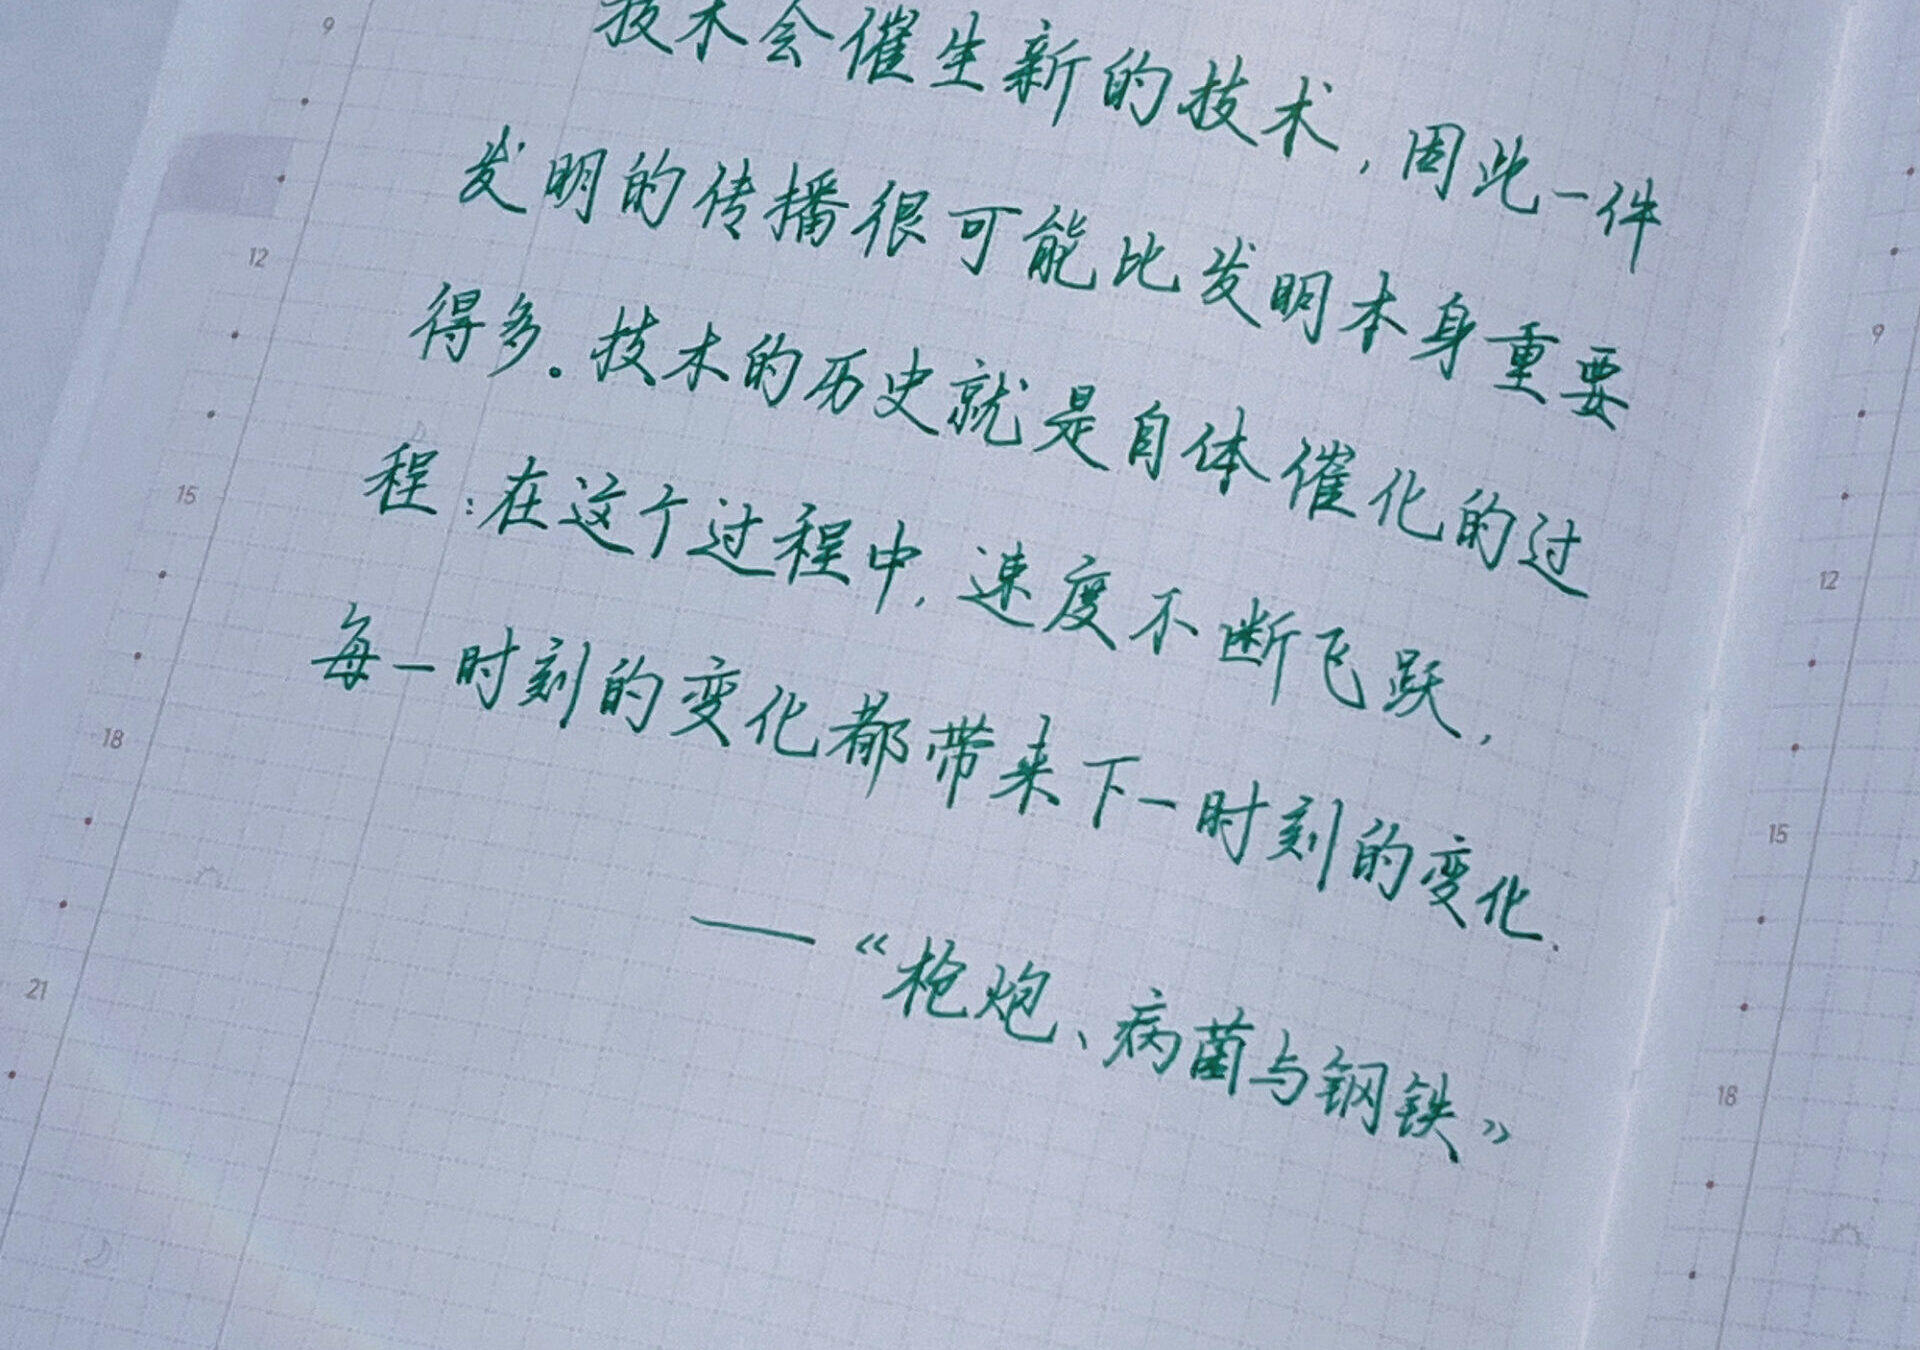 技术会催生新的技术，因此一件
发明的传播很可能比发明本身重要
得多。技术的历史就是自体催化的过
程：在这个过程中，速度不断飞跃，
每一时刻的变化都带来下一时刻的变化.
——《枪炮、病菌与钢铁》
9
12
15
18
21
9
12
15
18